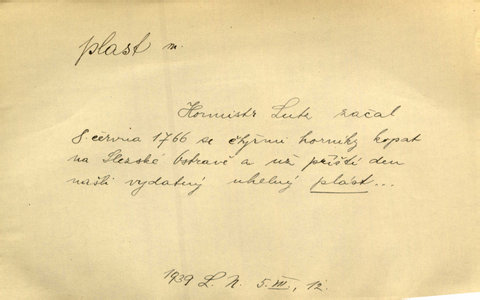 plast m.
Hormistr Lutz začal
8. června 1766 se čtyřmi horníky kopat
na Slezské Ostravě a už příští den
našli vydatný uhelný plást...
1939 L. N. 5. III, 12.